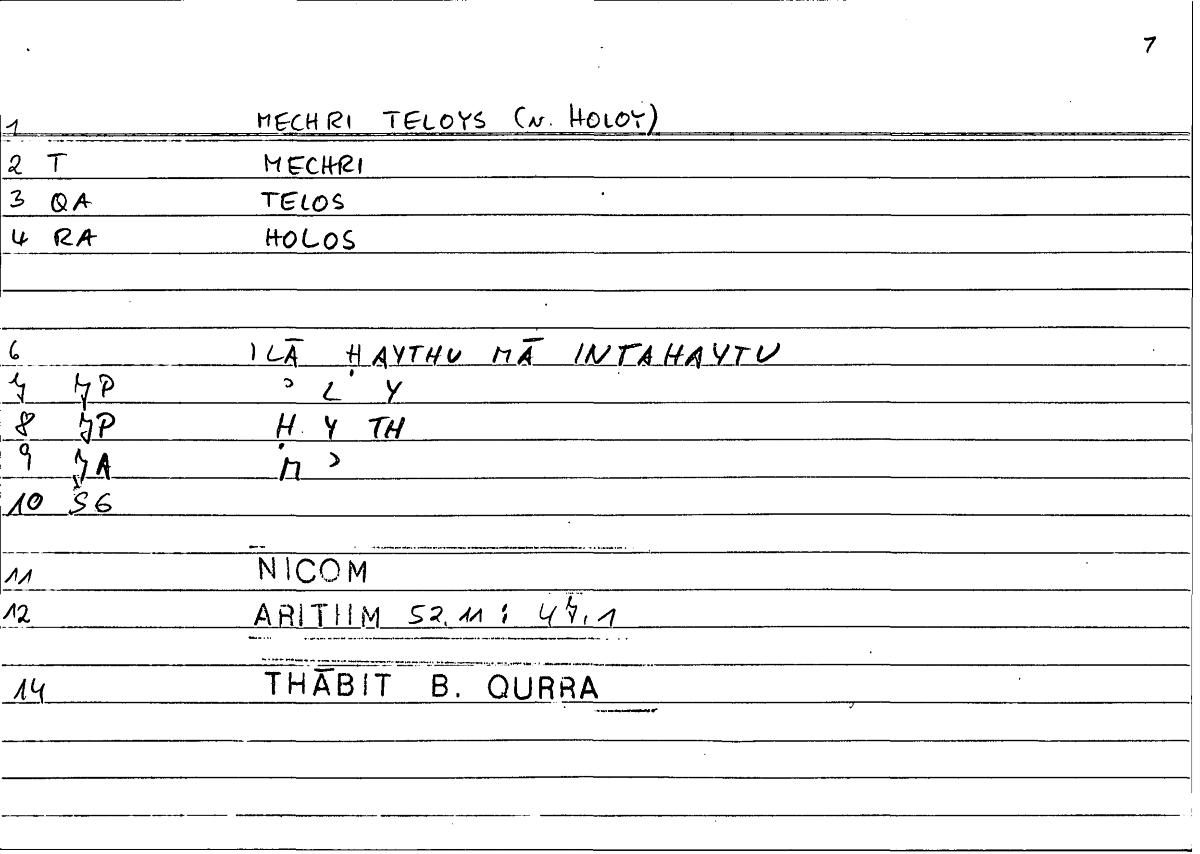 7
1 MECHRI TELOYS (N. HOLOY)
2 T MECHRI
3 QA TELOS
4 RA HOLOS
6 ILĀ ḤAYTHU MĀ INTAHAYTU
7 7P ʾ L Y
8 7P Ḥ Y TH
9 7A M ʾ
10 ŠG
11 NICOM
12 ARITHM 52.11 : 47.1
14 THĀBIT B. QURRA